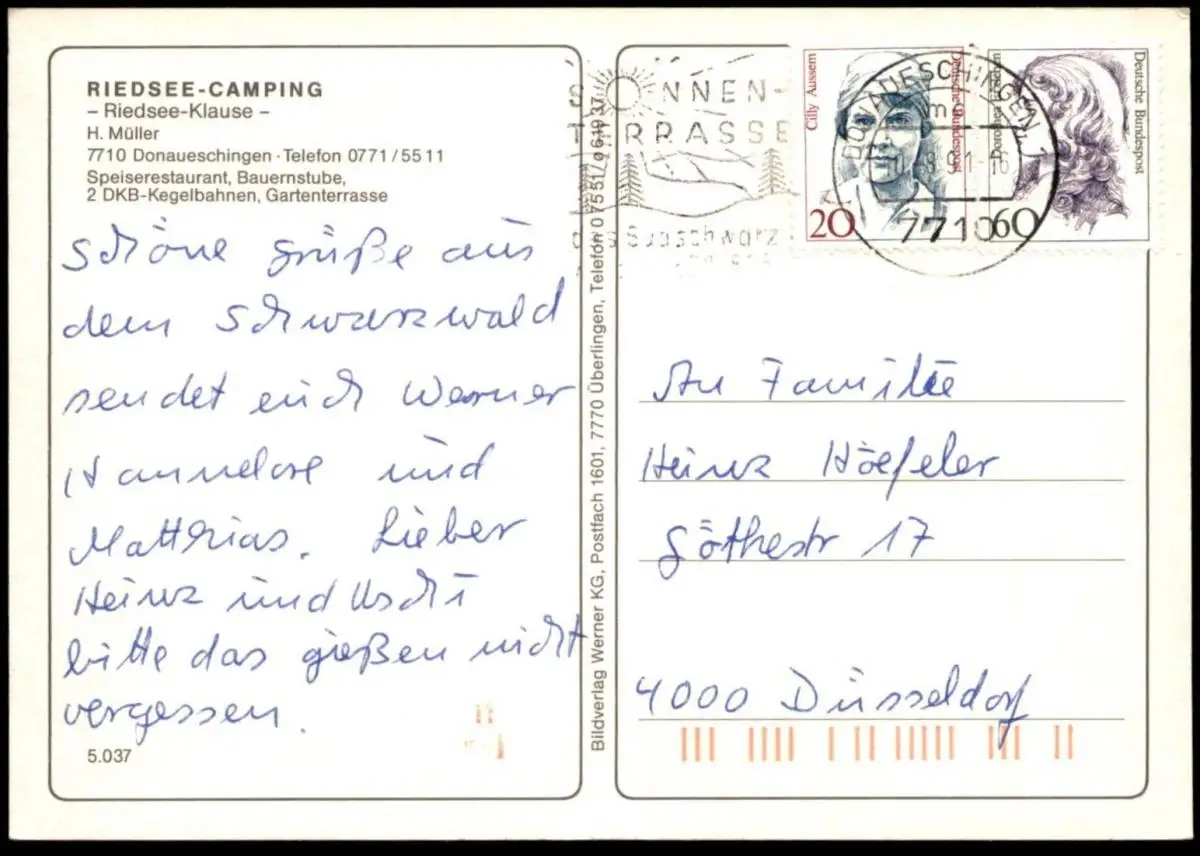 RIEDSEE-CAMPING
– Riedsee-Klause –
H. Müller
7710 Donaueschingen · Telefon 0771/5511
Speiserestaurant, Bauernstube,
2 DKB-Kegelbahnen, Gartenterrasse
Schöne grüße aus
dem Schwarzwald
sendet euch Werner
Hannelore und
Matthias. Lieber
Heinz und Uschi
bitte das gießen nicht
vergessen.
5.037
Bildverlag Werner KG, Postfach 1601, 7770 Überlingen, Telefon 07551/61937
NNEN-
TERRASSE
des Südschwarz
DONAUESCHINGEN 1
mc
7710
Cilly Aussem
Deutsche Bundespost
20
Dorothea Erxleben
Deutsche Bundespost
60
An Familie
Heinz Höefeler
Göthestr 17
4000 Düsseldorf